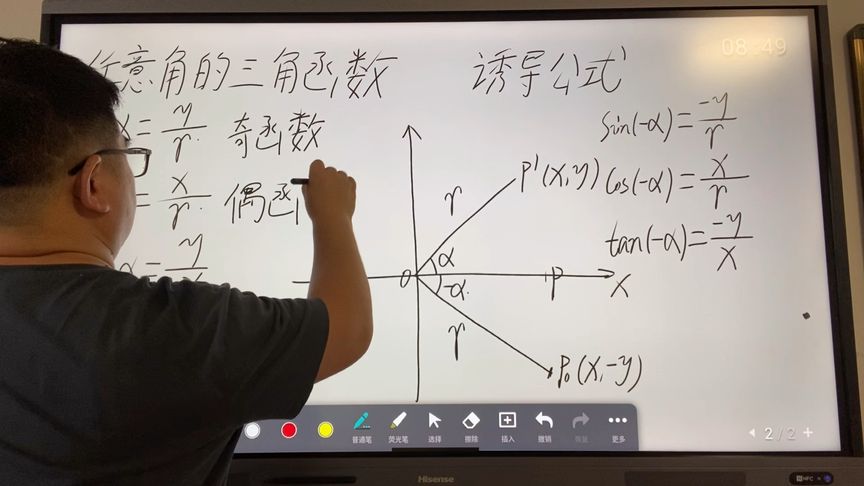 任意角的三角函数 诱导公式
08:49
α = y/r 奇函数
= x/r 偶函
α = y/x
sin(-α) = -y/r
cos(-α) = x/r
tan(-α) = -y/x
P'(x,y)
r
α
O -α P x
r
P₀(x,-y)
普通笔 荧光笔 选择 擦除 插入 撤销 恢复 更多
2/2
Hisense
NFC